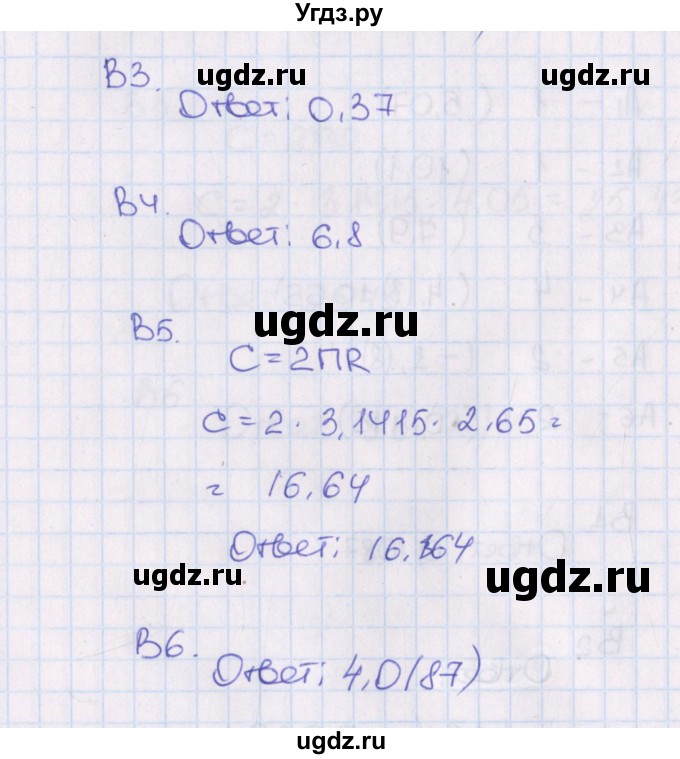 Угдз.ру
В3. ugdz.ru ugdz.ru
Ответ: 0,37
В4.
Ответ: 6,8
В5. ugdz.ru
C = 2ПR
C = 2 · 3,1415 · 2,65 =
= 16,64
Ответ: 16,64
ugdz.ru ugdz.ru
В6.
Ответ: 4,0(87)
ugdz.ru